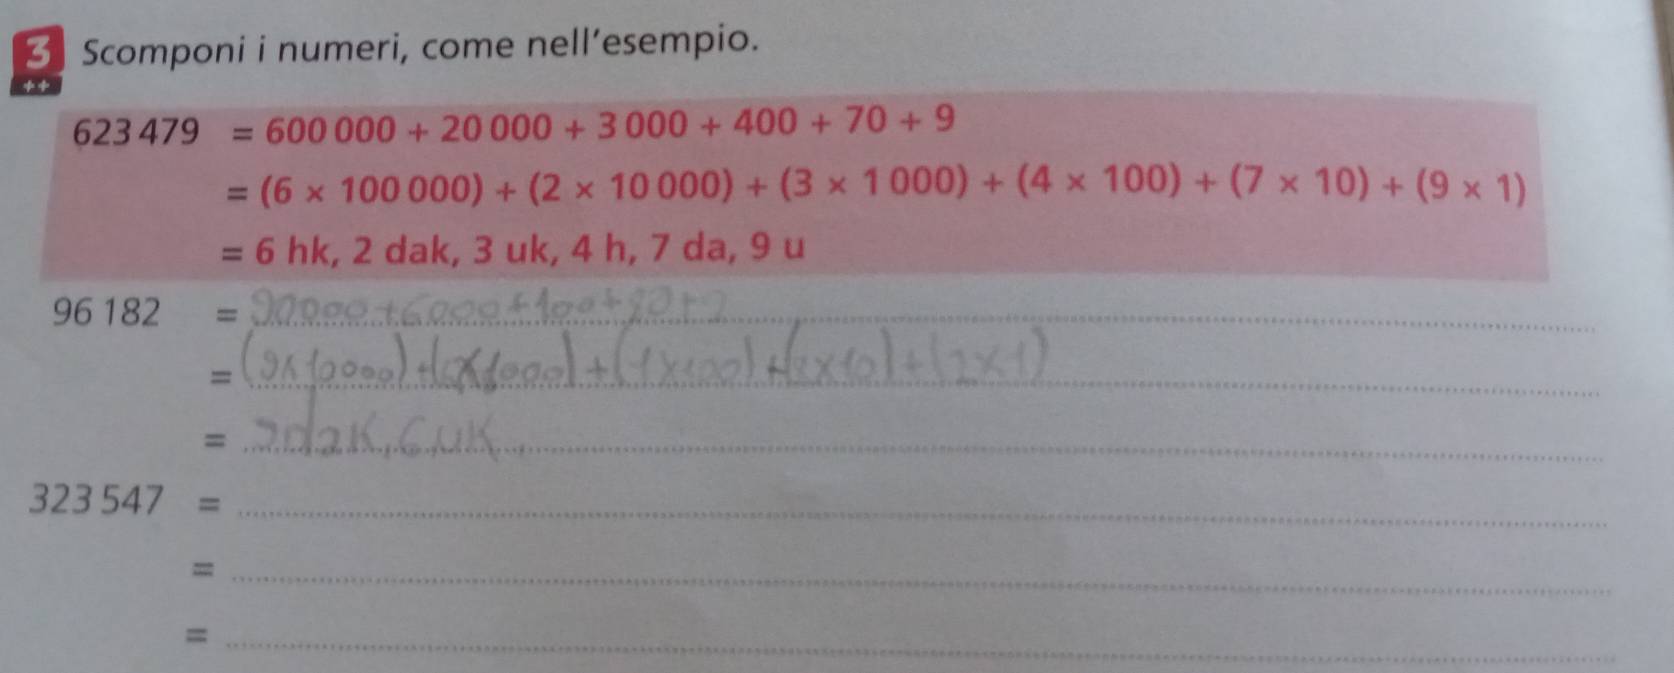 3 Scomponi i numeri, come nell'esempio.
++
623 479 = 600 000 + 20 000 + 3 000 + 400 + 70 + 9
= (6 × 100 000) + (2 × 10 000) + (3 × 1 000) + (4 × 100) + (7 × 10) + (9 × 1)
= 6 hk, 2 dak, 3 uk, 4 h, 7 da, 9 u
96 182 = 90000+6000+100+80+2
= (9x10000)+(6x1000)+(1x100)+(8x10)+(2x1)
= 9 dak, 6 uk,
323 547 =
=
=